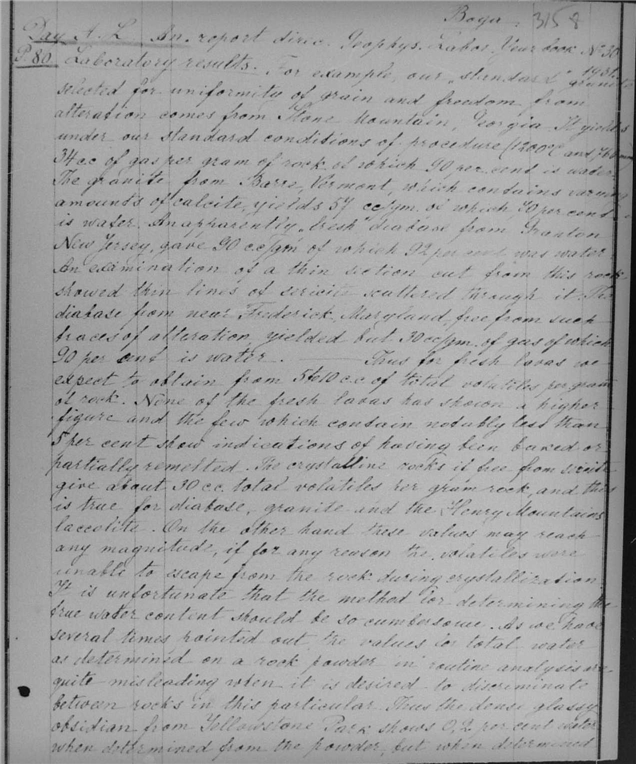 Boyer 315 8
Day A. L. An. report direc. Geophys. Labor. Year book No 30
P. 80. Laboratory results. For example, our "standard" granite 1931
selected for uniformity of grain and freedom from
alteration comes from Stone Mountain, Georgia. It yields
under our standard conditions of procedure (1200°C and
34 cc of gas per gram of rock of which 90 per cent is water.
The granite from Barre, Vermont, which contains varying
amounts of calcite, yields 57 cc/gm. of which 70 per cent
is water. An apparently "fresh" diabase from
New Jersey, gave 90 cc/gm of which 92 per cent was water.
An examination of a thin section cut from this rock
showed thin lines of sericite scattered through it. The
diabase from near Frederick, Maryland, free from such
traces of alteration, yielded but 30 cc/gm. of gas of which
90 per cent is water. — Thus for fresh lavas we
expect to obtain from 5 to 10 c.c of total volatiles per gram
of rock. None of the fresh lavas has shown a higher
figure and the few which contain notably less than
5 per cent show indications of having been baked or
partially remelted. The crystalline rocks if free from sericite
give about 30 cc. total volatiles per gram rock, and this
is true for diabase, granite and the Henry Mountains
laccolite. On the other hand these values may reach
any magnitude, if for any reason the volatiles were
unable to escape from the rock during crystallization.
It is unfortunate that the method for determining the
true water content should be so cumbersome. As we have
several times pointed out, the values for total water
as determined on a rock powder in routine analysis are
quite misleading when it is desired to discriminate
between rocks in this particular. Thus the dense, glassy
obsidian from Yellowstone Park shows 0,2 per cent water
when determined from the powder, but when determined